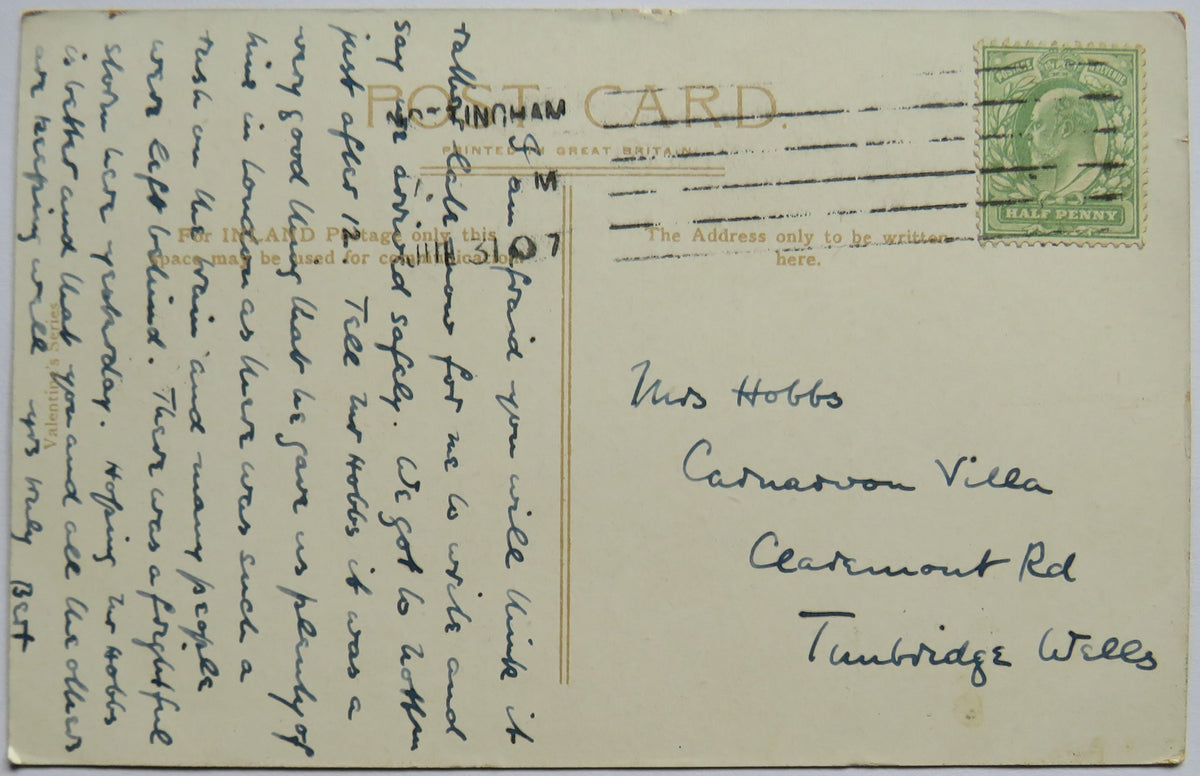 POST CARD.
PRINTED IN GREAT BRITAIN.
For INLAND Postage only this
space may be used for communication.
The Address only to be written
here.
Valentine's Series
NOTTINGHAM
M
31 07
POSTAGE REVENUE
HALF PENNY
I am afraid you will think it
rather late now for me to write and
say we arrived safely. We got to Nottm
just after 12. Tell Mr Hobbs it was a
very good thing that he gave us plenty of
time in London as there was such a
rush on the train and many people
were left behind. There was a frightful
storm here yesterday. Hoping Mr Hobbs
is better and that you and all the others
are keeping well yrs truly Bert
Mrs Hobbs
Carnarvon Villa
Claremont Rd
Tunbridge Wells